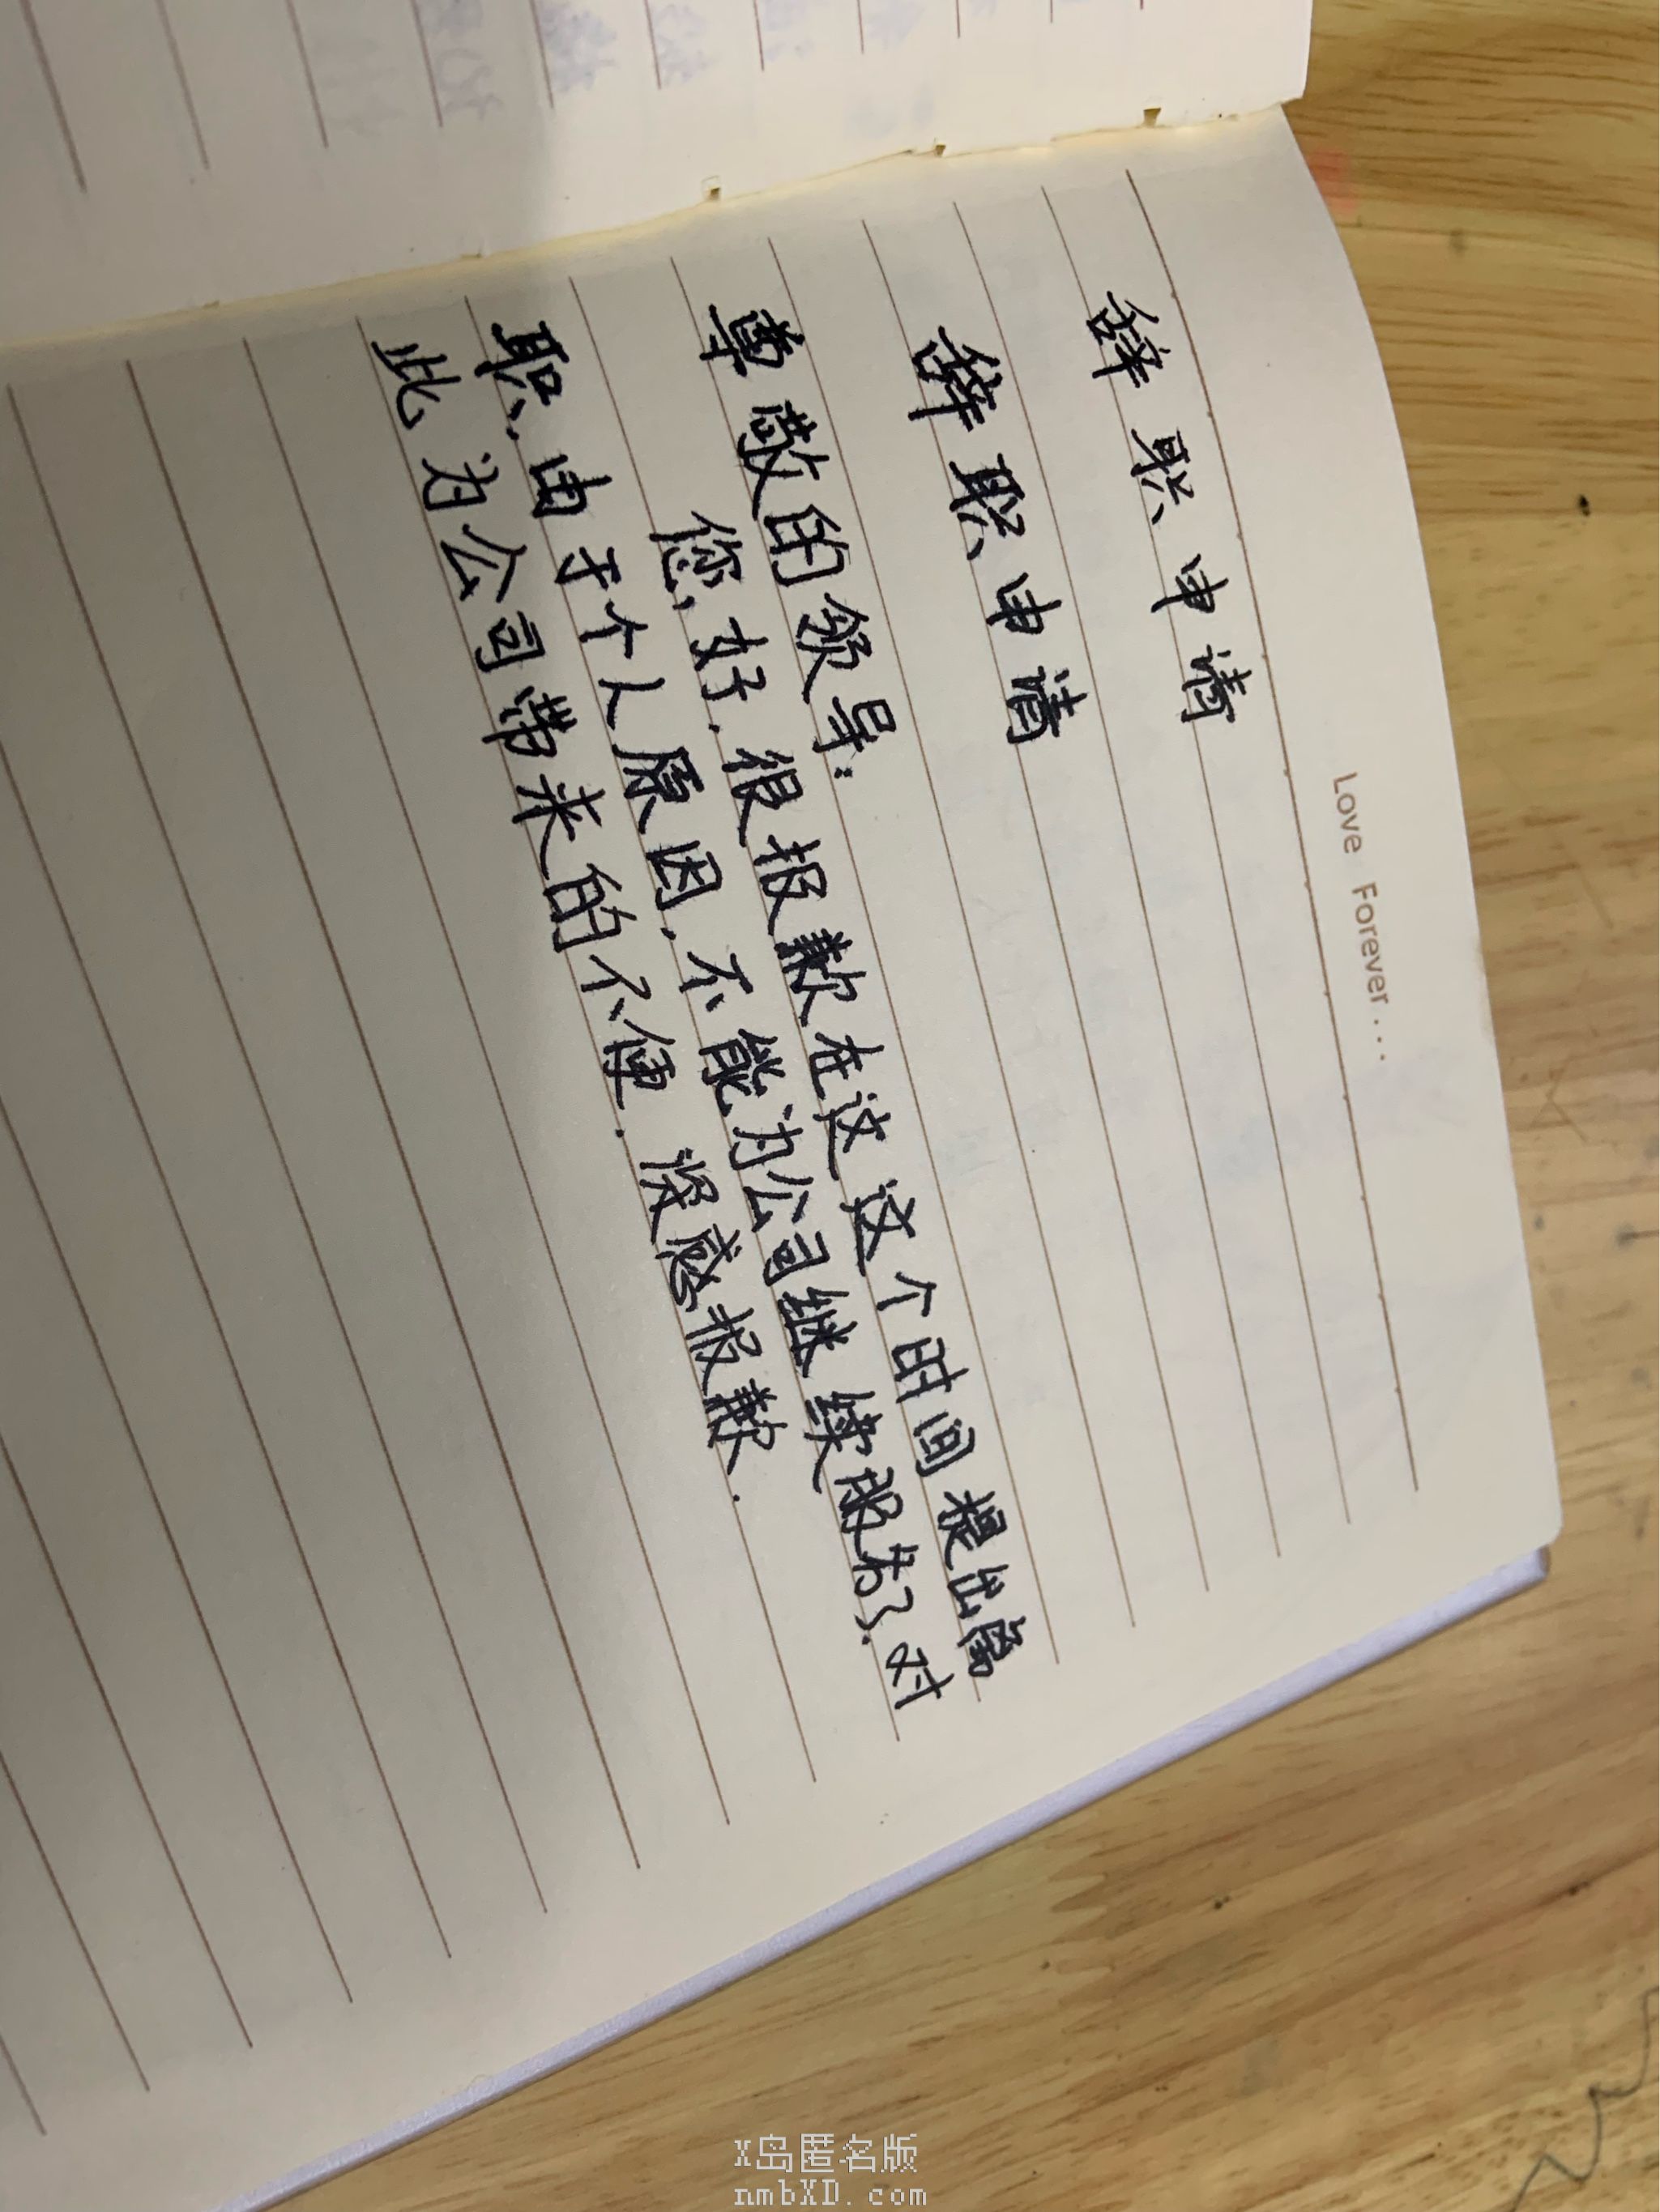 Love Forever...
辞职申请
辞职申请
尊敬的领导:
您好.很报歉在这这个时间提出离
职.由于个人原因,不能为公司继续服务了.对
此为公司带来的不便.深感报歉.
X岛匿名版
nmbXD.com